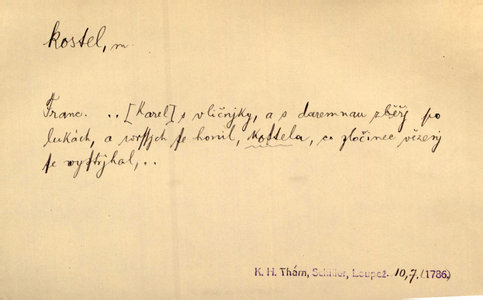 kostel, m.
Franc. .. [Karel] s vličnjky, a s daremnau zběřj po
lukách, a wrssjch se honil, kostela, co zločinec vězený
se wystrjhal, ..
K. H. Thám, Schiller, Loupež. 10, 7. (1786)